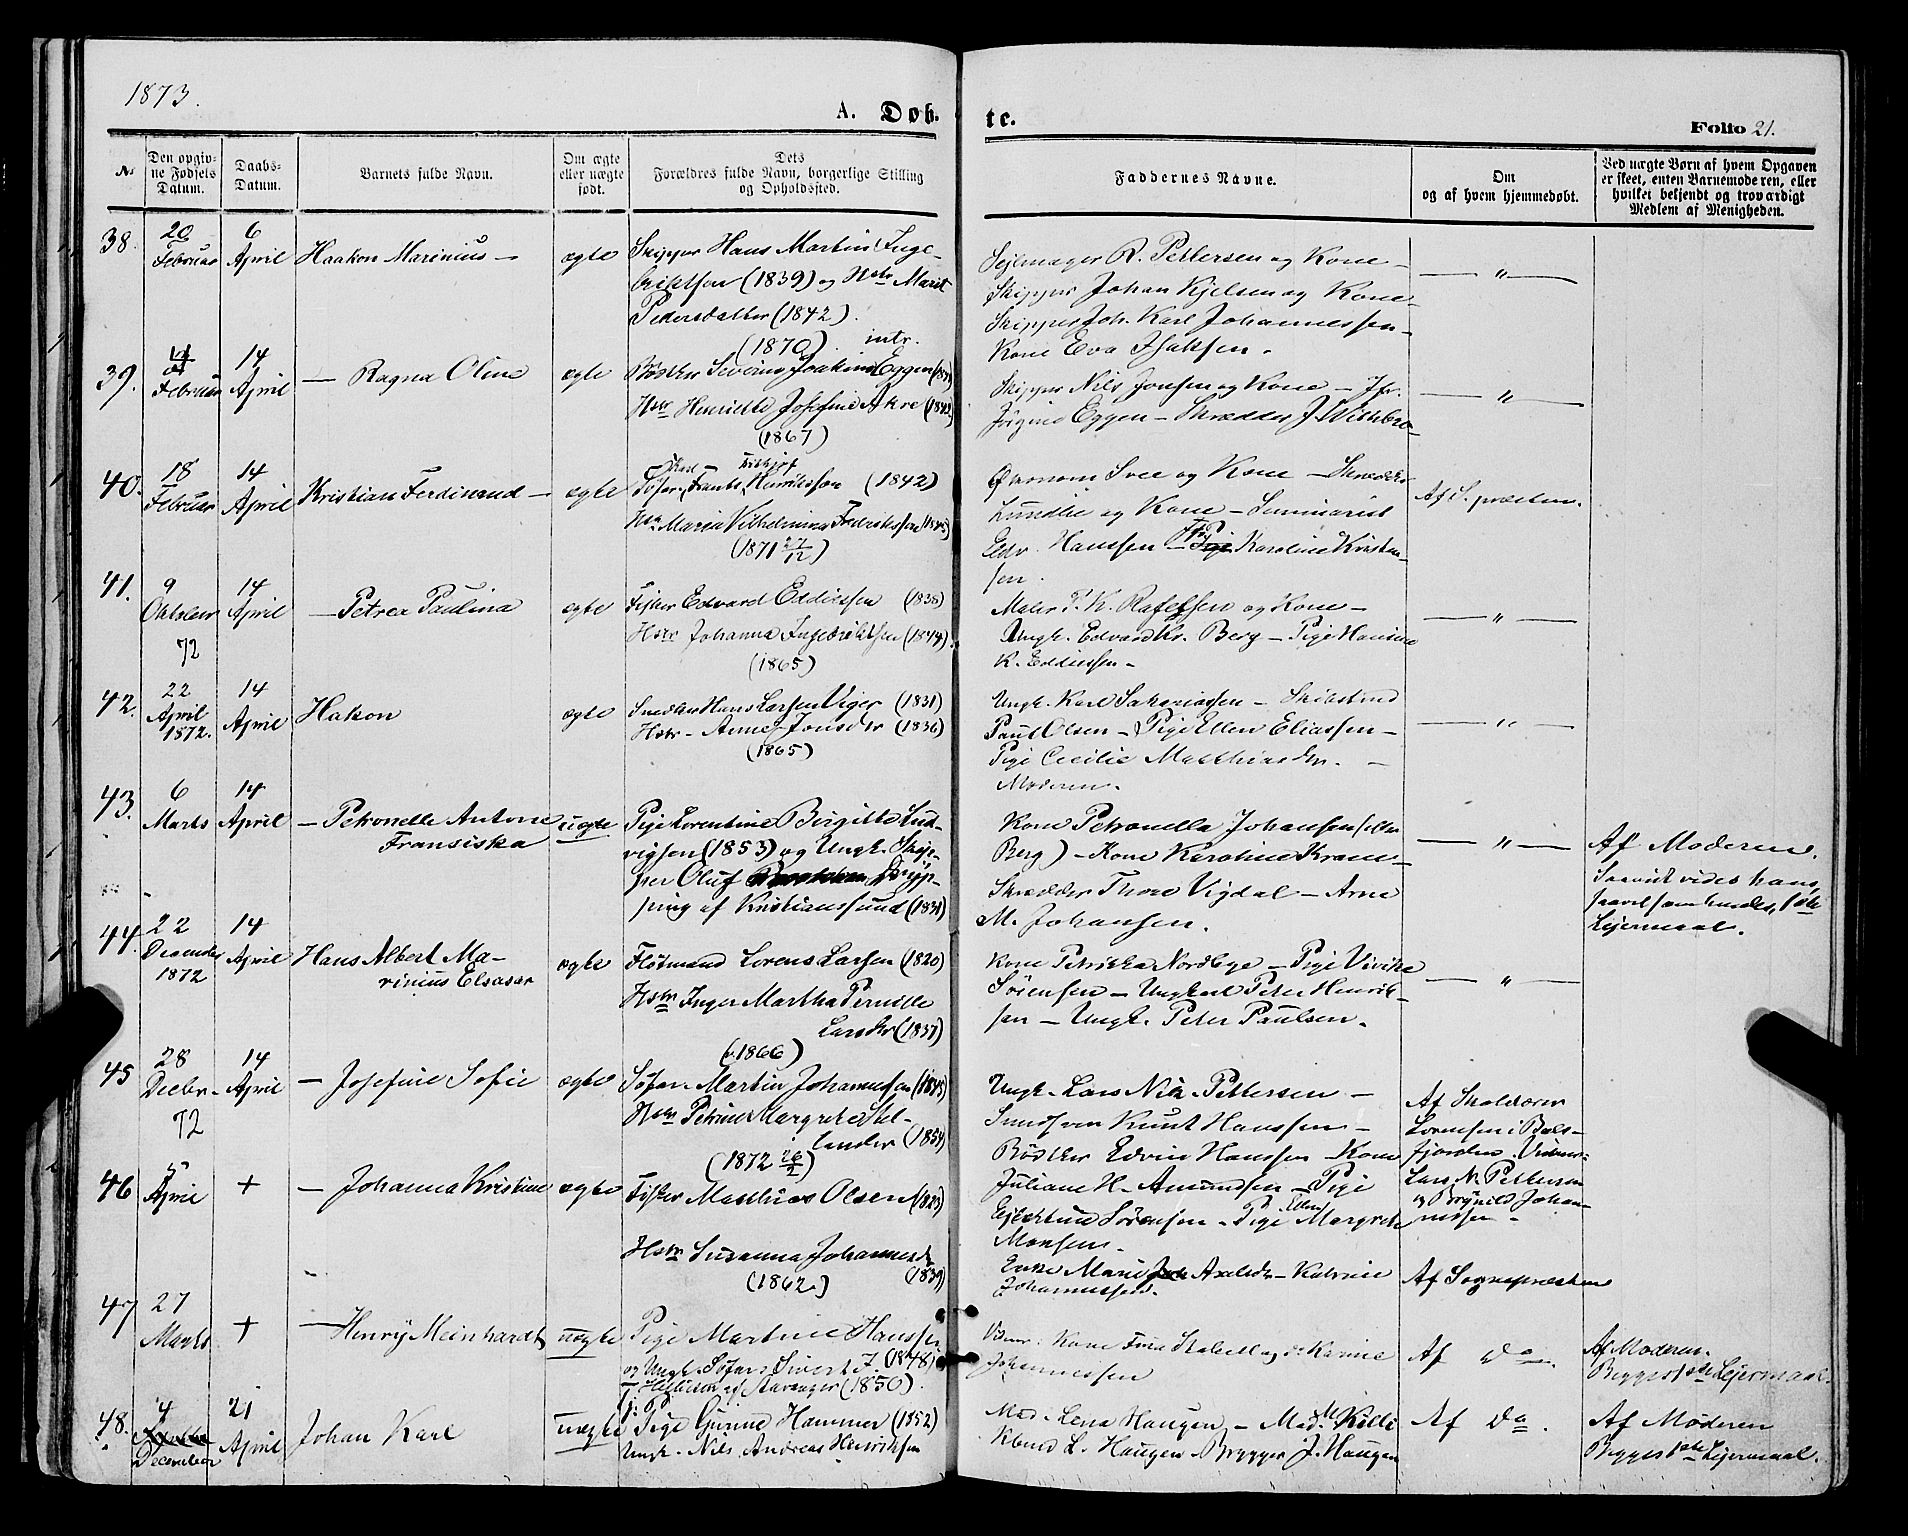 1873.
A. Døb-
te.
Folio 21.
No
Den opgiv-
ne Fødsels
Datum.
Daabs-
Datum.
Barnets fulde Navn.
Om ægte
eller uægte
født.
Dets
Forældres fulde Navn, borgerlige Stilling
og Opholdssted.
Faddernes Navne.
Om
og af hvem hjemmedøbt.
Ved uægte Børn af hvem Opgaven
er skeet, enten Barnemoderen, eller
hvilket bekjendt og troværdigt
Medlem af Menigheden.
38.
20
Februar
6
April
Haakon Marinius
ægte
Skipper Hans Martin Inge-
briktsen (1839) og Hstr Marit
Pedersdatter (1842).
(1870) intr.
Sejlmager R. Pettersen og Kone -
Skipper Johan Kjelsen og Kone
Skipper Joh. Karl Johannessen -
Kone Eva Isaksen.
— " —
39.
Februar
14
April
— Ragna Oline
ægte
Bødker Severin Joakim Eggen
Hstr Henriette Josefine Akre (1842)
(1867)
Skipper Nils Jonsen og Kone - Jfr.
Jørgine Eggen - Skrædder J.
— " —
40.
18
Februar
14
April
Kristian Ferdinand
ægte
Karl - Frithjof
Frants Henriksen (1842)
Hstr Maria Vilhelmina Fredriksen
(1871 27/12)
Økonom Svee og Kone - Skrædder
Lundlie og Kone - Seminarist
Edv. Hanssen - Pige Karoline Kristen-
sen.
Af S.præsten.
41.
9
Oktober
72
14
April
— Petrea Paulina
ægte
Fisker Edvard Eddiessen (1838)
Hstr Johanna Ingebriktsen (1844).
(1865)
Maler P. K. Rafelsen og Kone -
Ungk. Edvard Kr. Berg - Pige Hansine
K. Eddiessen -
— " —
42.
22
April
1872.
14
April
Hakon
ægte
Snedker Hans Larsen Viger (1831)
Hstr - Anne Jonsdr (1836)
(1865)
Ungk. Karl Sakariassen -
Paul Olsen - Pige Ellen Eliassen -
Pige Cecilie Matthiasdr. -
Moderen.
— " —
43.
6
Marts
14
April
— Petronelle Antone
Fransiska
uægte
Pige Lorentine Birgitte Lud-
vigsen (1853) og Ungk. Skip-
per Oluf
ping af Kristianssund (1831)
Kone Petronella Johansen (eller
Berg) - Kone Karoline Krane -
Skrædder Thore Vigdal - Arne
M. Johansen.
— " —
Af Moderen.
Saavidt vides hans
saavelsom hendes 1ste
Lejermaal.
44.
22
December
1872
14
April
Hans Albert Ma-
rinius Elsasar
ægte
Flotmand Lorens Larsen (1820)
Hstr Inger Martha Pernille
Larsdr (1837)
(1866)
Kone Petrikka Nordbye - Pige Vivika
Sørensen - Ungkarl Peter Henrik-
sen - Ungk. Peter Paulsen.
— " —
45
28
Decbr -
72
14
April
— Josefine Sofie
ægte
Søfar. Martin Johannessen
Hstr Petrine Margrete Stel-
lander (1854)
(1872 26/2)
Ungk. Lars Nik. Pettersen -
Smedsven Knut Hanssen -
Bødker Edvin Hanssen - Kone
Juliane H. Amundsen - Pige
Sørensen - Pige Ellen Margrete
Monsen.
Af Skolelærer
Lorensen i Bals-
fjorden. Vidner:
Lars N. Pettersen
og Brynild Johan-
nessen -
46
5
April
+
— Johanna Kristine
ægte
Fisker Matthias Olsen (1823)
Hstr Susanna Johannesdr
(1839)
(1862)
Enke Marie Axelsdr - Katrine
Johannessen.
Af Sognepræsten
47
27
Marts
+
— Henrij Meinhardt
uægte
Pige Martine Hanssen
(1848)
og Ungk. Søfar. Sivert J.
af Stavanger (1850).
Vidner: Kone Trine Stabell og Karine
Johannessen
Af Do.
Af Moderen.
Begges 1ste Lejermaal.
48.
4
December
21
April
Johan Karl
uægte
Pige Gurine Hammer (1852)
Ungk. Nils Andreas Henriksen
Mad. Lena Haugen - Mad. M. Kille
L. Haugen - Brygger J. Haugen
Af Do.
Af Moderen
Begges 1ste Lejermaal.